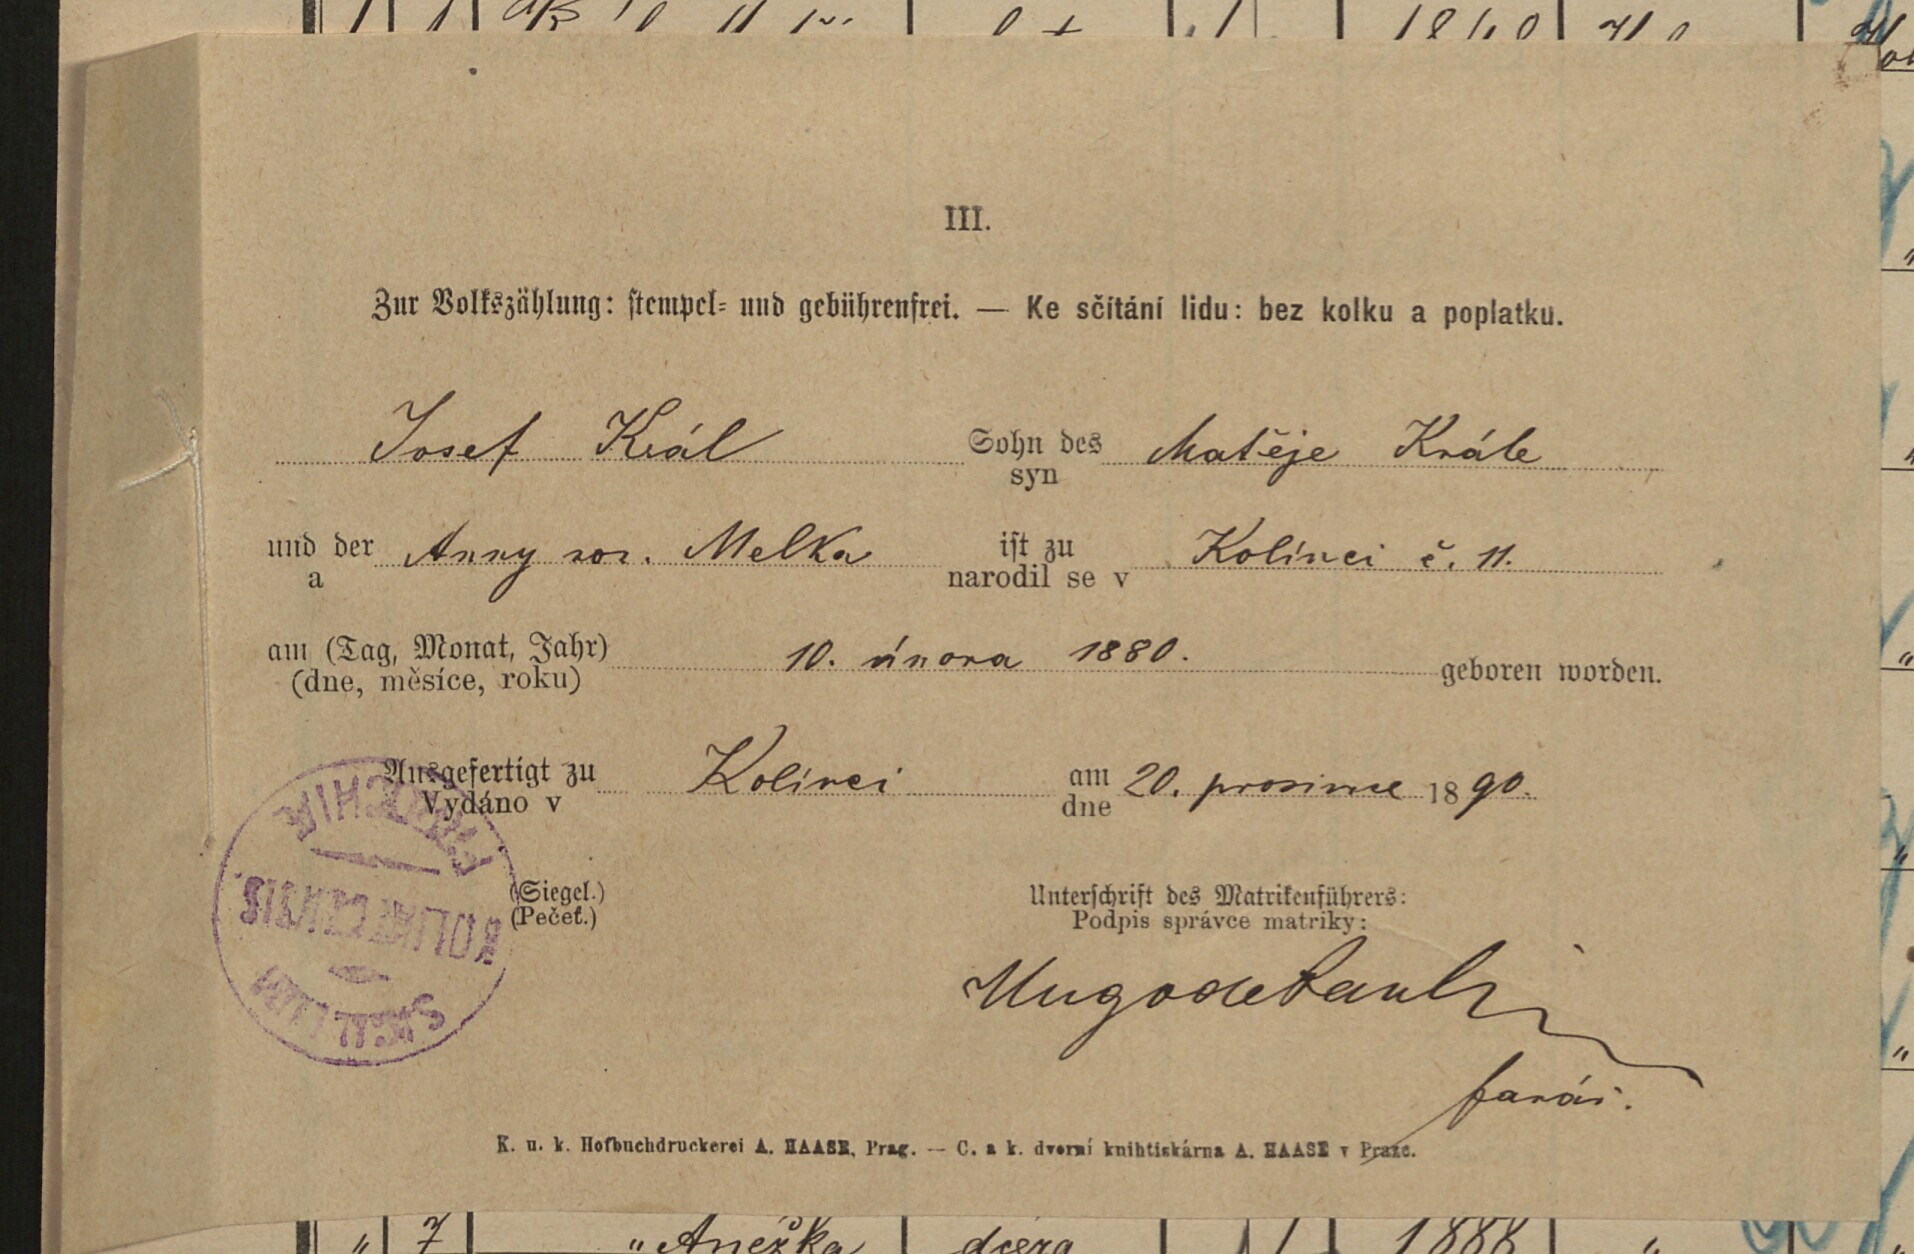 III.
Zur Volkszählung: stempel- und gebührenfrei. — Ke sčítání lidu: bez kolku a poplatku.
Josef Král Sohn des Matěje Krále
syn
und der Anny roz. Melka ist zu Kolínci č. 11.
a narodil se v
am (Tag, Monat, Jahr) 10. února 1880. geboren worden.
(dne, měsíce, roku)
Ausgefertigt zu Kolinci am 20. prosince 1890.
Vydáno v dne
(Siegel.) Unterschrift des Matrikenführers:
(Pečeť.) Podpis správce matriky:
SIGILLUM
KOLINECENSIS
farář.
K. u. k. Hofbuchdruckerei A. HAASE, Prag. — C. a k. dvorní knihtiskárna A. HAASE v Praze.
„ 7 „ Anežka dcera 1 1888 „